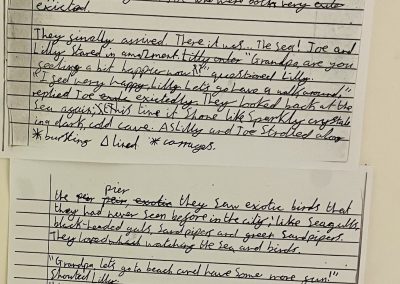 were both very
exicted.
They finally arrived. There it was... The Sea! Joe and
Lilly stared in amazment. Lilly "Grandpa are you
feeling a bit happier now?" questioned Lilly.
"I feel very happy, Lilly. Let's go have a walk around"
replied Joe excitedly. They looked back at the
Sea again; this time it shone like sparkly crystals
in a dark, cold cave. As Lilly and Joe strolled along
*bursting △ lined *carriages.
pier
the they saw exotic birds that
they had never seen before in the city; like Seagulls,
black-headed gulls, sandpipers and green sandpipers.
They loved watching the sea and birds.
"Grandpa lets go to beach and have some more fun!"
Shouted Lilly.